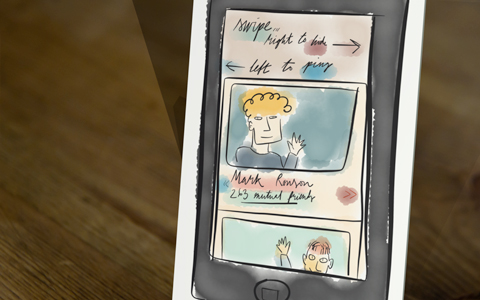 swipe..
right to hide
← left to ping
Mark Ronson
263 mutual friends